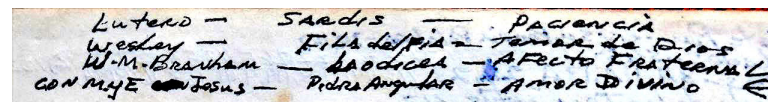 Lutero — SARdis — PACiENCiA
Wesley — FiLAdelFiA — Temor de Dios
W-M-BRANham — LAodiceA — AFecto FRATeRNAL
CON MyE Jesus — PiedRA ANgulAR — AMOR DiviNO